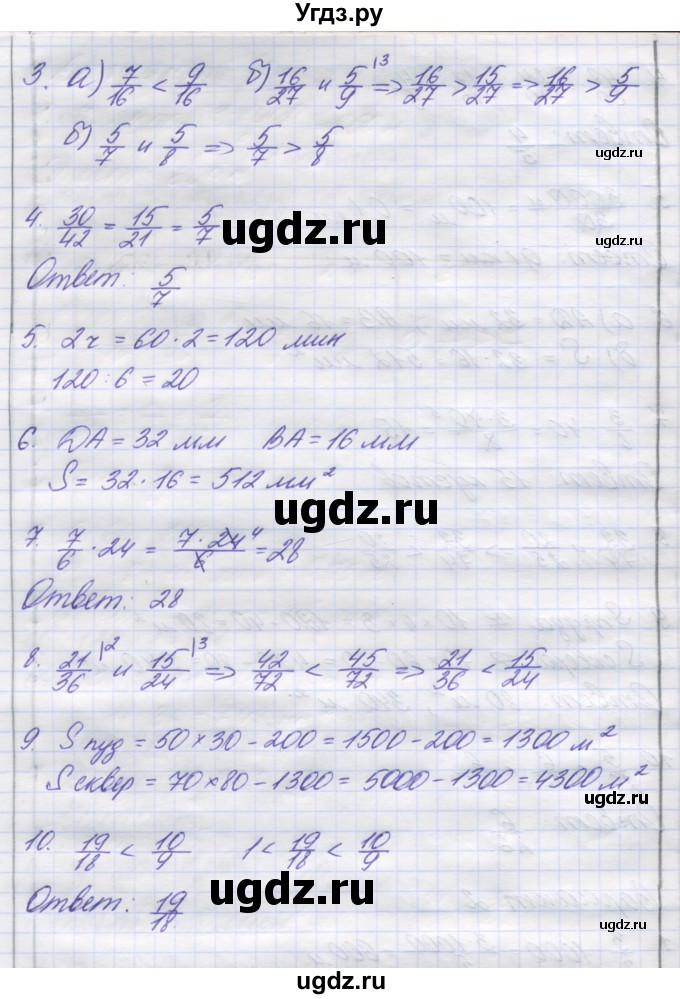 Угдз.ру
3. а) 7/16 < 9/16 б) 16/27 и 5/9 |3 => 16/27 > 15/27 => 16/27 > 5/9
ugdz.ru
б) 5/7 и 5/8 => 5/7 > 5/8
ugdz.ru
4. 30/42 = 15/21 = 5/7
ugdz.ru
Ответ: 5/7
5. 2ч = 60 · 2 = 120 мин
ugdz.ru
120 : 6 = 20
6. DA = 32 мм BA = 16 мм
ugdz.ru
S = 32 · 16 = 512 мм²
ugdz.ru
7. 7/6 · 24 = 7 · 24 4/6 = 28
ugdz.ru
Ответ: 28
8. 21/36 |2 и 15/24 |3 => 42/72 < 45/72 => 21/36 < 15/24
ugdz.ru
9. S пуд = 50 × 30 - 200 = 1500 - 200 = 1300 м²
S сквер = 70 × 80 - 1300 = 5000 - 1300 = 4300 м²
ugdz.ru
10. 19/18 < 10/9 1 < 19/18 < 10/9
ugdz.ru
Ответ: 19/18
ugdz.ru
ugdz.ru